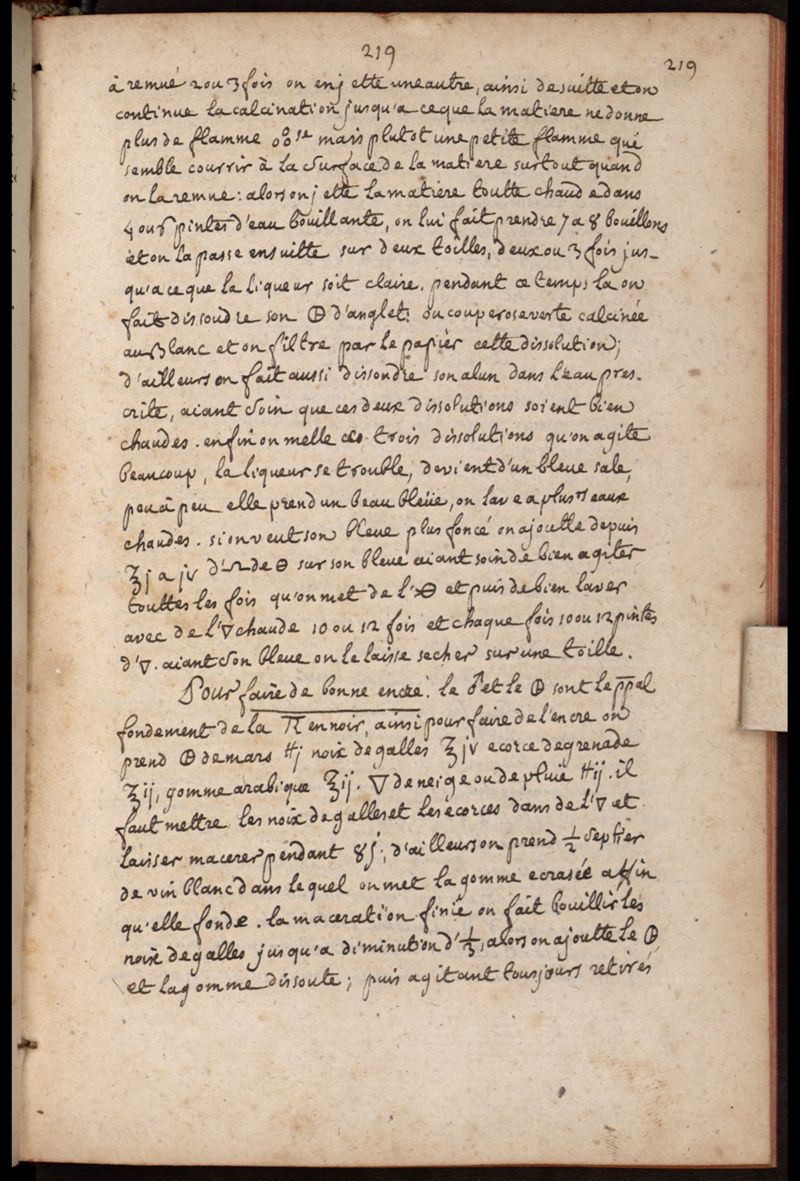 219
219
à remué 2 ou 3 fois on en jette une autre, ainsi de suitte et on
continue la calcination jusqu'a ce que la matiere ne donne
plus de flamme mais plutot une petite flamme qui
semble courrir à la surface de la matiere surtout quand
on la remue : alors on jette la matiere toutte chaude dans
4 ou 5 pintes d'eau bouillante, on lui fait prendre 7 a 8 bouillons
et on la passe ensuitte sur deux toilles, deux ou 3 fois jus-
qu'a ce que la liqueur soit claire. pendant ce temps la on
fait dissoudre son d'anglet: ou couperose verte calcinée
au blanc et on filtre par le papier cette dissolution;
d'ailleurs on fait aussi dissoudre son alun dans l'eau pres-
crite, aiant soin que ces deux dissolutions soient bien
chaudes. enfin on melle ces trois dissolutions qu'on agite
beaucoup, la liqueur se trouble, devient d'un bleue sale,
peu à peu elle prend un beau bleüe, on lave a plusrs eaux
chaudes. si on veut son bleue plus foncé on ajoutte depuis
ʒj a jv d' de sur son bleue aiant soin de bien agiter
touttes les fois qu'on met de l' et puis de bien laver
avec de l'🜄 chaude 10 ou 12 fois et chaque fois 10 ou 12 pintes
d'🜄. aiant son bleue on le laisse secher sur une toille.
Pour faire de bonne encre. le et le sont le ppal
fondement de la en noir, ainsi pour faire de l'encre on
prend de mars noix de galles ʒjv ecorce de grenade
ʒij, gomme arabique ʒij. 🜄 de neige ou de pluie ij. il
faut mettre les noix de galles et les écorces dans de l'🜄 et
laisser macerer pendant 8 j:, d'ailleurs on prend ½ septier
de vin blanc dans lequel on met la gomme ecrasée affin
qu'elle fonde. la maceration finie on fait bouillir les
noix de galles jusqu'a diminution d'⅓, alors on ajoutte le
et la gomme dissoute; puis agitant tousjours retirés